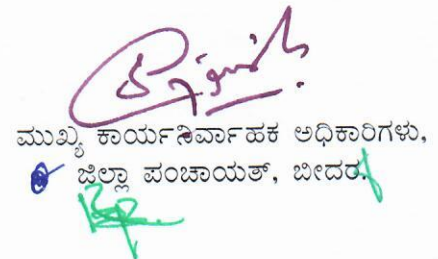 ಮುಖ್ಯ ಕಾರ್ಯನಿರ್ವಾಹಕ ಅಧಿಕಾರಿಗಳು,
ಜಿಲ್ಲಾ ಪಂಚಾಯತ್, ಬೀದರ.